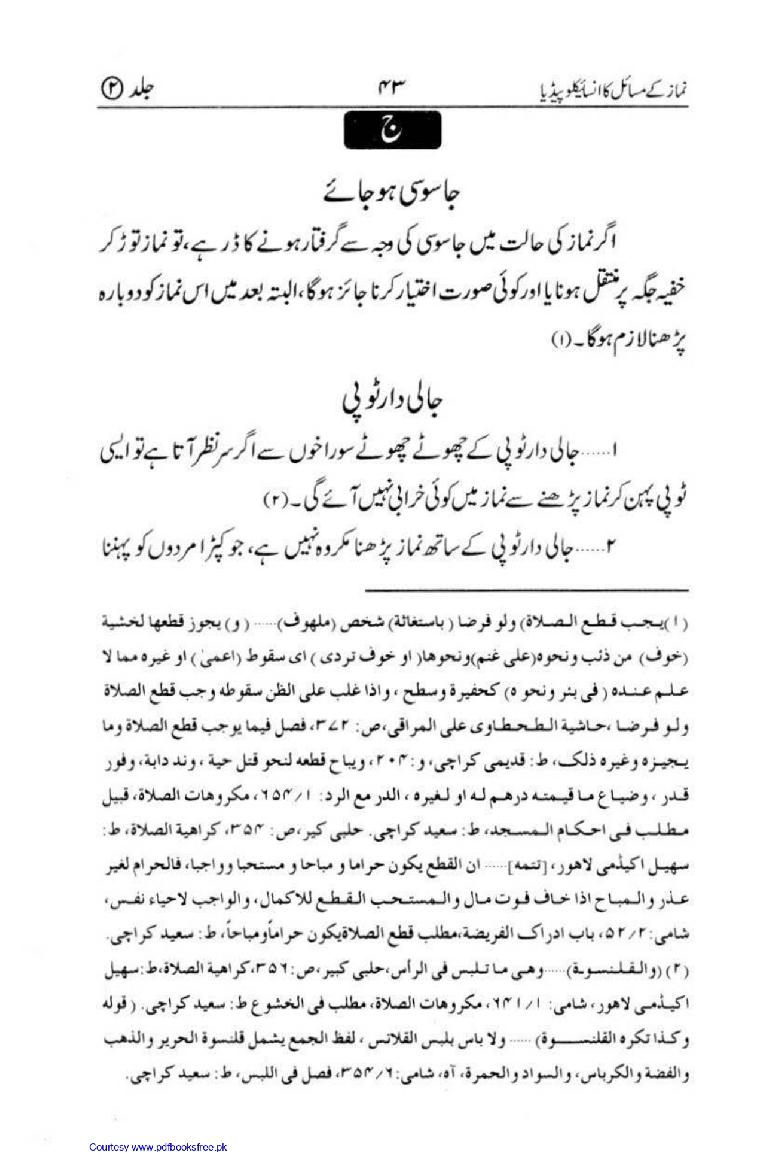 نماز کے مسائل کا انسائیکلوپیڈیا ۴۳ جلد ②
ج
جاسوسی ہو جائے
اگر نماز کی حالت میں جاسوسی کی وجہ سے گرفتار ہونے کا ڈر ہے، تو نماز توڑ کر
خفیہ جگہ پر منتقل ہونا یا اور کوئی صورت اختیار کرنا جائز ہوگا، البتہ بعد میں اس نماز کو دوبارہ
پڑھنا لازم ہوگا۔ (۱)
جالی دار ٹوپی
۱......جالی دار ٹوپی کے چھوٹے چھوٹے سوراخوں سے اگر سر نظر آتا ہے تو ایسی
ٹوپی پہن کر نماز پڑھنے سے نماز میں کوئی خرابی نہیں آئے گی۔ (۲)
۲......جالی دار ٹوپی کے ساتھ نماز پڑھنا مکروہ نہیں ہے، جو کپڑا مردوں کو پہننا
(۱) یجب قطع الصلاة) ولو فرضا ( باستغاثة) شخص (ملهوف)...... ( و) یجوز قطعها لخشیة
(خوف) من ذئب ونحوه(علی غنم)ونحوها( او خوف تردی ) ای سقوط (اعمیٰ) او غیره مما لا
علم عنده ( فی بئر ونحو ه) کحفیرة وسطح ، واذا غلب علی الظن سقوطه وجب قطع الصلاة
ولو فرضا ،حاشیة الطحطاوی علی المراقی،ص: ۳۷۲، فصل فیما یوجب قطع الصلاة وما
یجیزه وغیره ذلک، ط: قدیمی کراچی، و: ۲۰۴، ویباح قطعه لنحو قتل حیة ، وند دابة، وفور
قدر ، وضیاع ما قیمته درهم له او لغیره ، الدر مع الرد: ۶۵۴/۱، مکروهات الصلاة، قبیل
مطلب فی احکام المسجد، ط: سعید کراچی. حلبی کیر،ص: ۳۵۴، کراهیة الصلاة، ط:
سهیل اکیڈمی لاهور، [تتمه]...... ان القطع یکون حراما و مباحا و مستحبا وواجبا، فالحرام لغیر
عذر والمباح اذا خاف فوت مال والمستحب القطع للاکمال، والواجب لاحیاء نفس،
شامی: ۵۲/۲، باب ادراک الفریضة،مطلب قطع الصلاةیکون حراماًومباحاً، ط: سعید کراچی.
(۲) (والقلنسوة)......وهی ما تلبس فی الرأس،حلبی کبیر،ص:۳۵۶،کراهیة الصلاة،ط:سهیل
اکیڈمی لاهور، شامی: ۶۴۱/۱، مکروهات الصلاة، مطلب فی الخشوع ط: سعید کراچی. ( قوله
وکذا تکره القلنسوة) ...... ولا باس بلبس القلانس ، لفظ الجمع یشمل قلنسوة الحریر والذهب
والفضة والکرباس، والسواد والحمرة، آه، شامی: ۳۵۴/۶، فصل فی اللبس، ط: سعید کراچی.
Courtesy www.pdfbooksfree.pk